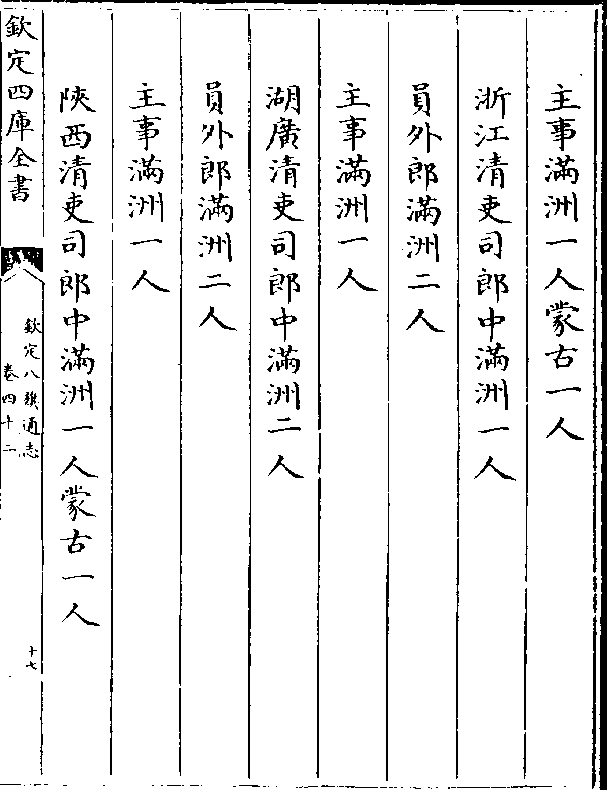 主事滿洲一人蒙古一人
浙江清吏司郎中滿洲一人
員外郎滿洲二人
主事滿洲一人
湖廣清吏司郎中滿洲二人
員外郎滿洲二人
主事滿洲一人
陜西清吏司郎中滿洲一人蒙古一人
欽定四庫全書
欽定八旗通志
卷四十二
十七